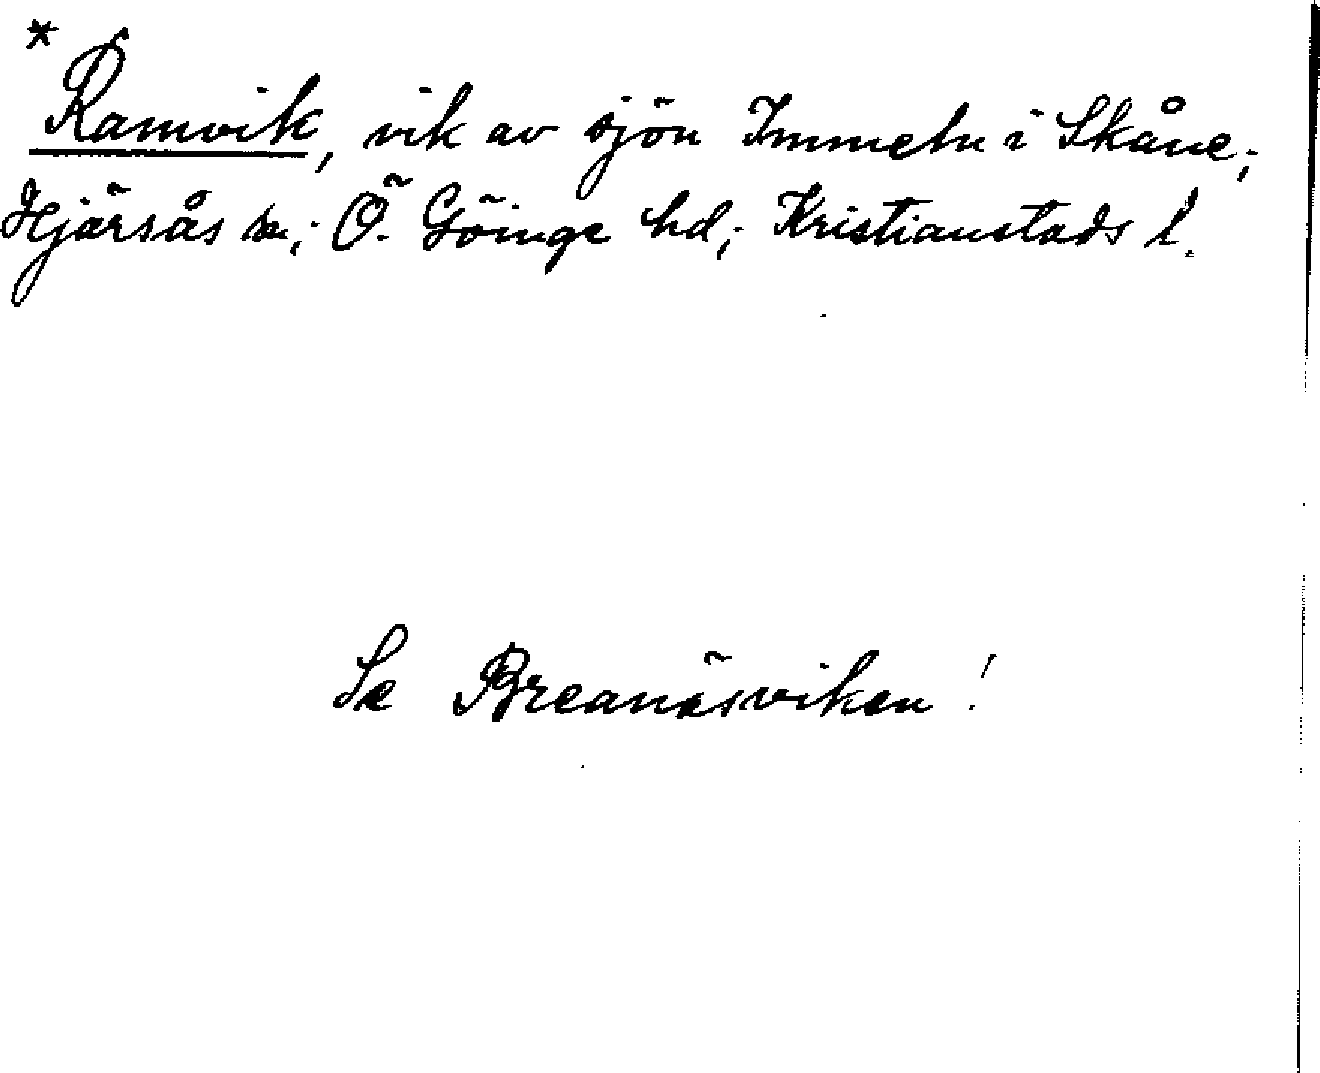 *
Ramvik, vik av sjön Immeln i Skåne;
Hjärsås sn; Ö. Göinge hd; Kristianstads l.
Se Breanäsviken!